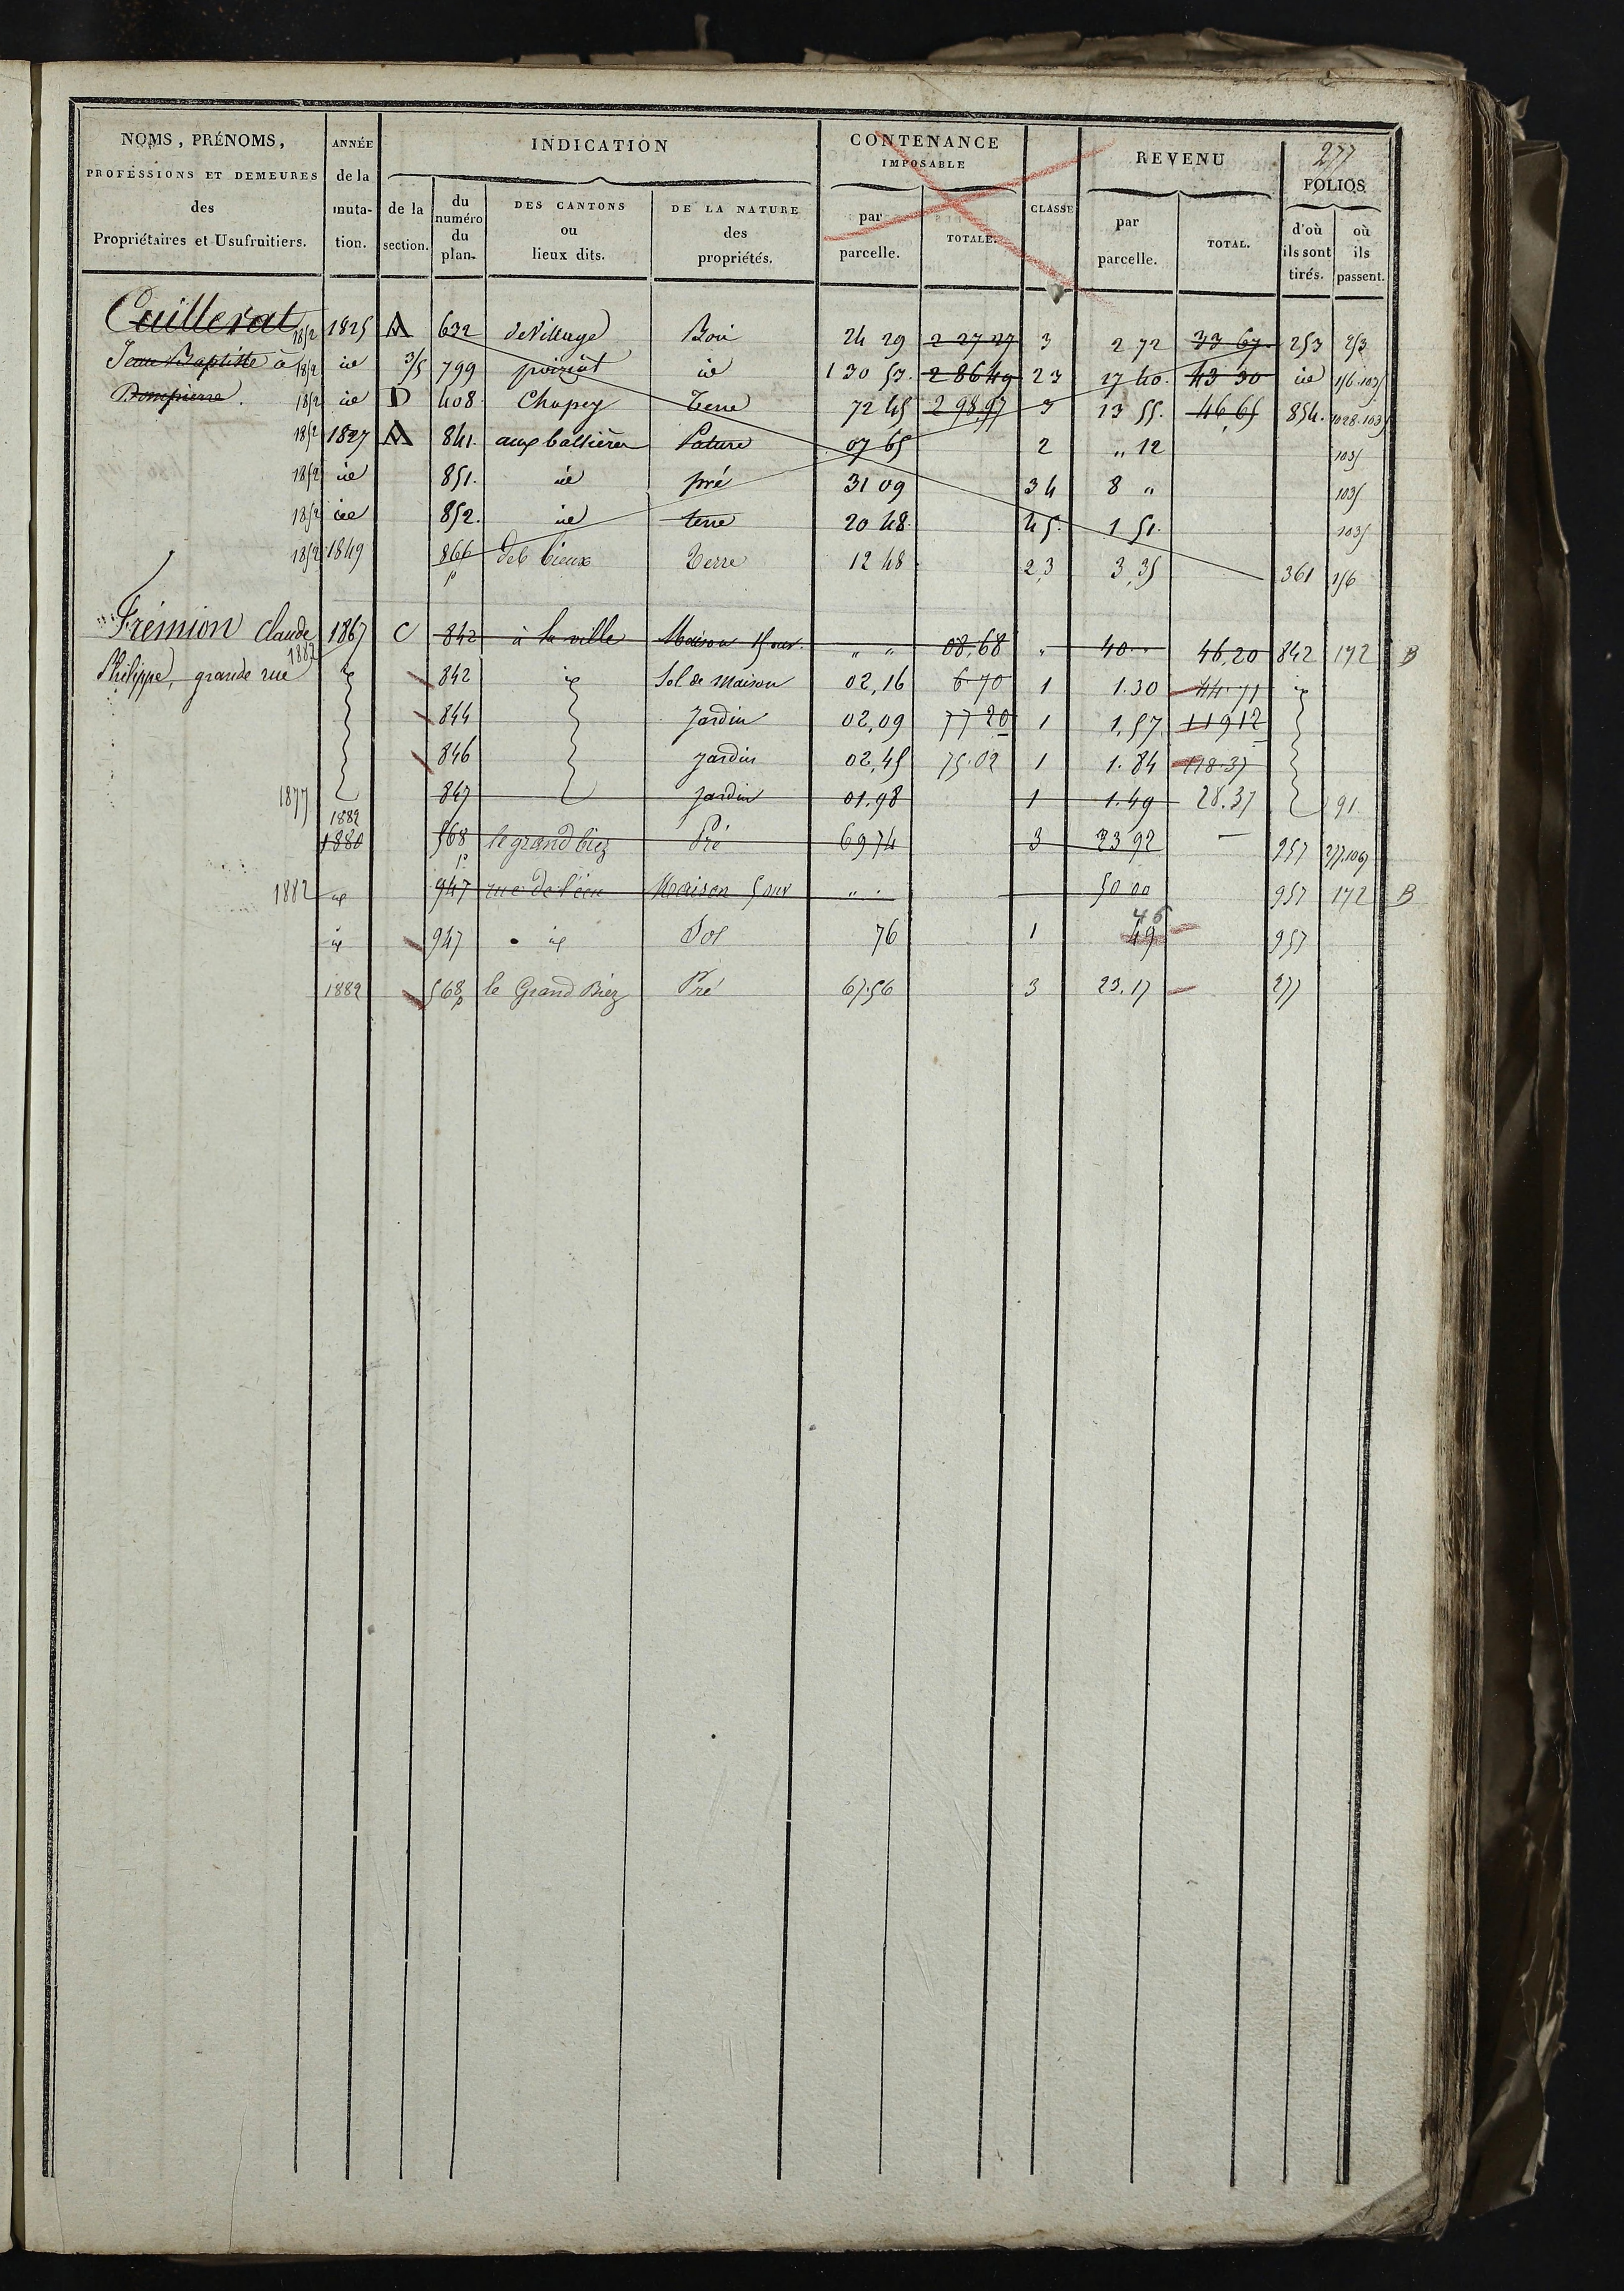 277
NOMS, PRÉNOMS, PROFESSIONS ET DEMEURES des Propriétaires et Usufruitiers.
ANNÉE de la mutation.
INDICATION
de la section.
du numéro du plan.
DES CANTONS ou lieux dits.
DE LA NATURE des propriétés.
CONTENANCE IMPOSABLE
par parcelle.
TOTALE.
CLASSE
REVENU
par parcelle.
TOTAL.
FOLIOS
d'où ils sont tirés.
où ils passent.
Cuillerat 1852 1825 A 632 Bois 24 29 2 27 27 3 2 72 33 67 253 253
Jean Baptiste à 1852 id 3/5 799 poiziat id 1 30 53 2 86 49 23 27 40 43 30 id 156.1035
Dompierre. 1852 id D 408 Chapey Terre 72 45 2 98 97 3 13 55 46 65 854 1028.1035
1852 1827 A 841 aux ballières Pature 07 65 2 " 12 1035
1852 id 851 id pré 31 09 34 8 " 1035
1852 id 852 id terre 20 48 45 1 51 1035
1852 1849 866 p des bieux Terre 12 48 2,3 3,35 361 156
Frémion Claude 1867 C 842 à la ville Maison 15 ouv. " " 08,68 " 40 " 46,20 842 172 B
Philippe, grande rue 1882 id 842 id Sol de Maison 02,16 6 70 1 1.30 44.71 id
844 Jardin 02,09 77 20 1 1,57 119 12
846 Jardin 02,45 75.02 1 1.84 118.37
1877 847 Jardin 01.98 1 1.49 28.37 91
1882
1880 568 p le grand biez Pré 69 74 3 23 92 957 277.1067
1882 id 947 rue de l'écu Maison 5 ouv " " 50 00 957 172 B
46
id 947 id Sol 76 1 49 957
1882 568 p le Grand Biez Pré 67.56 3 23.17 277